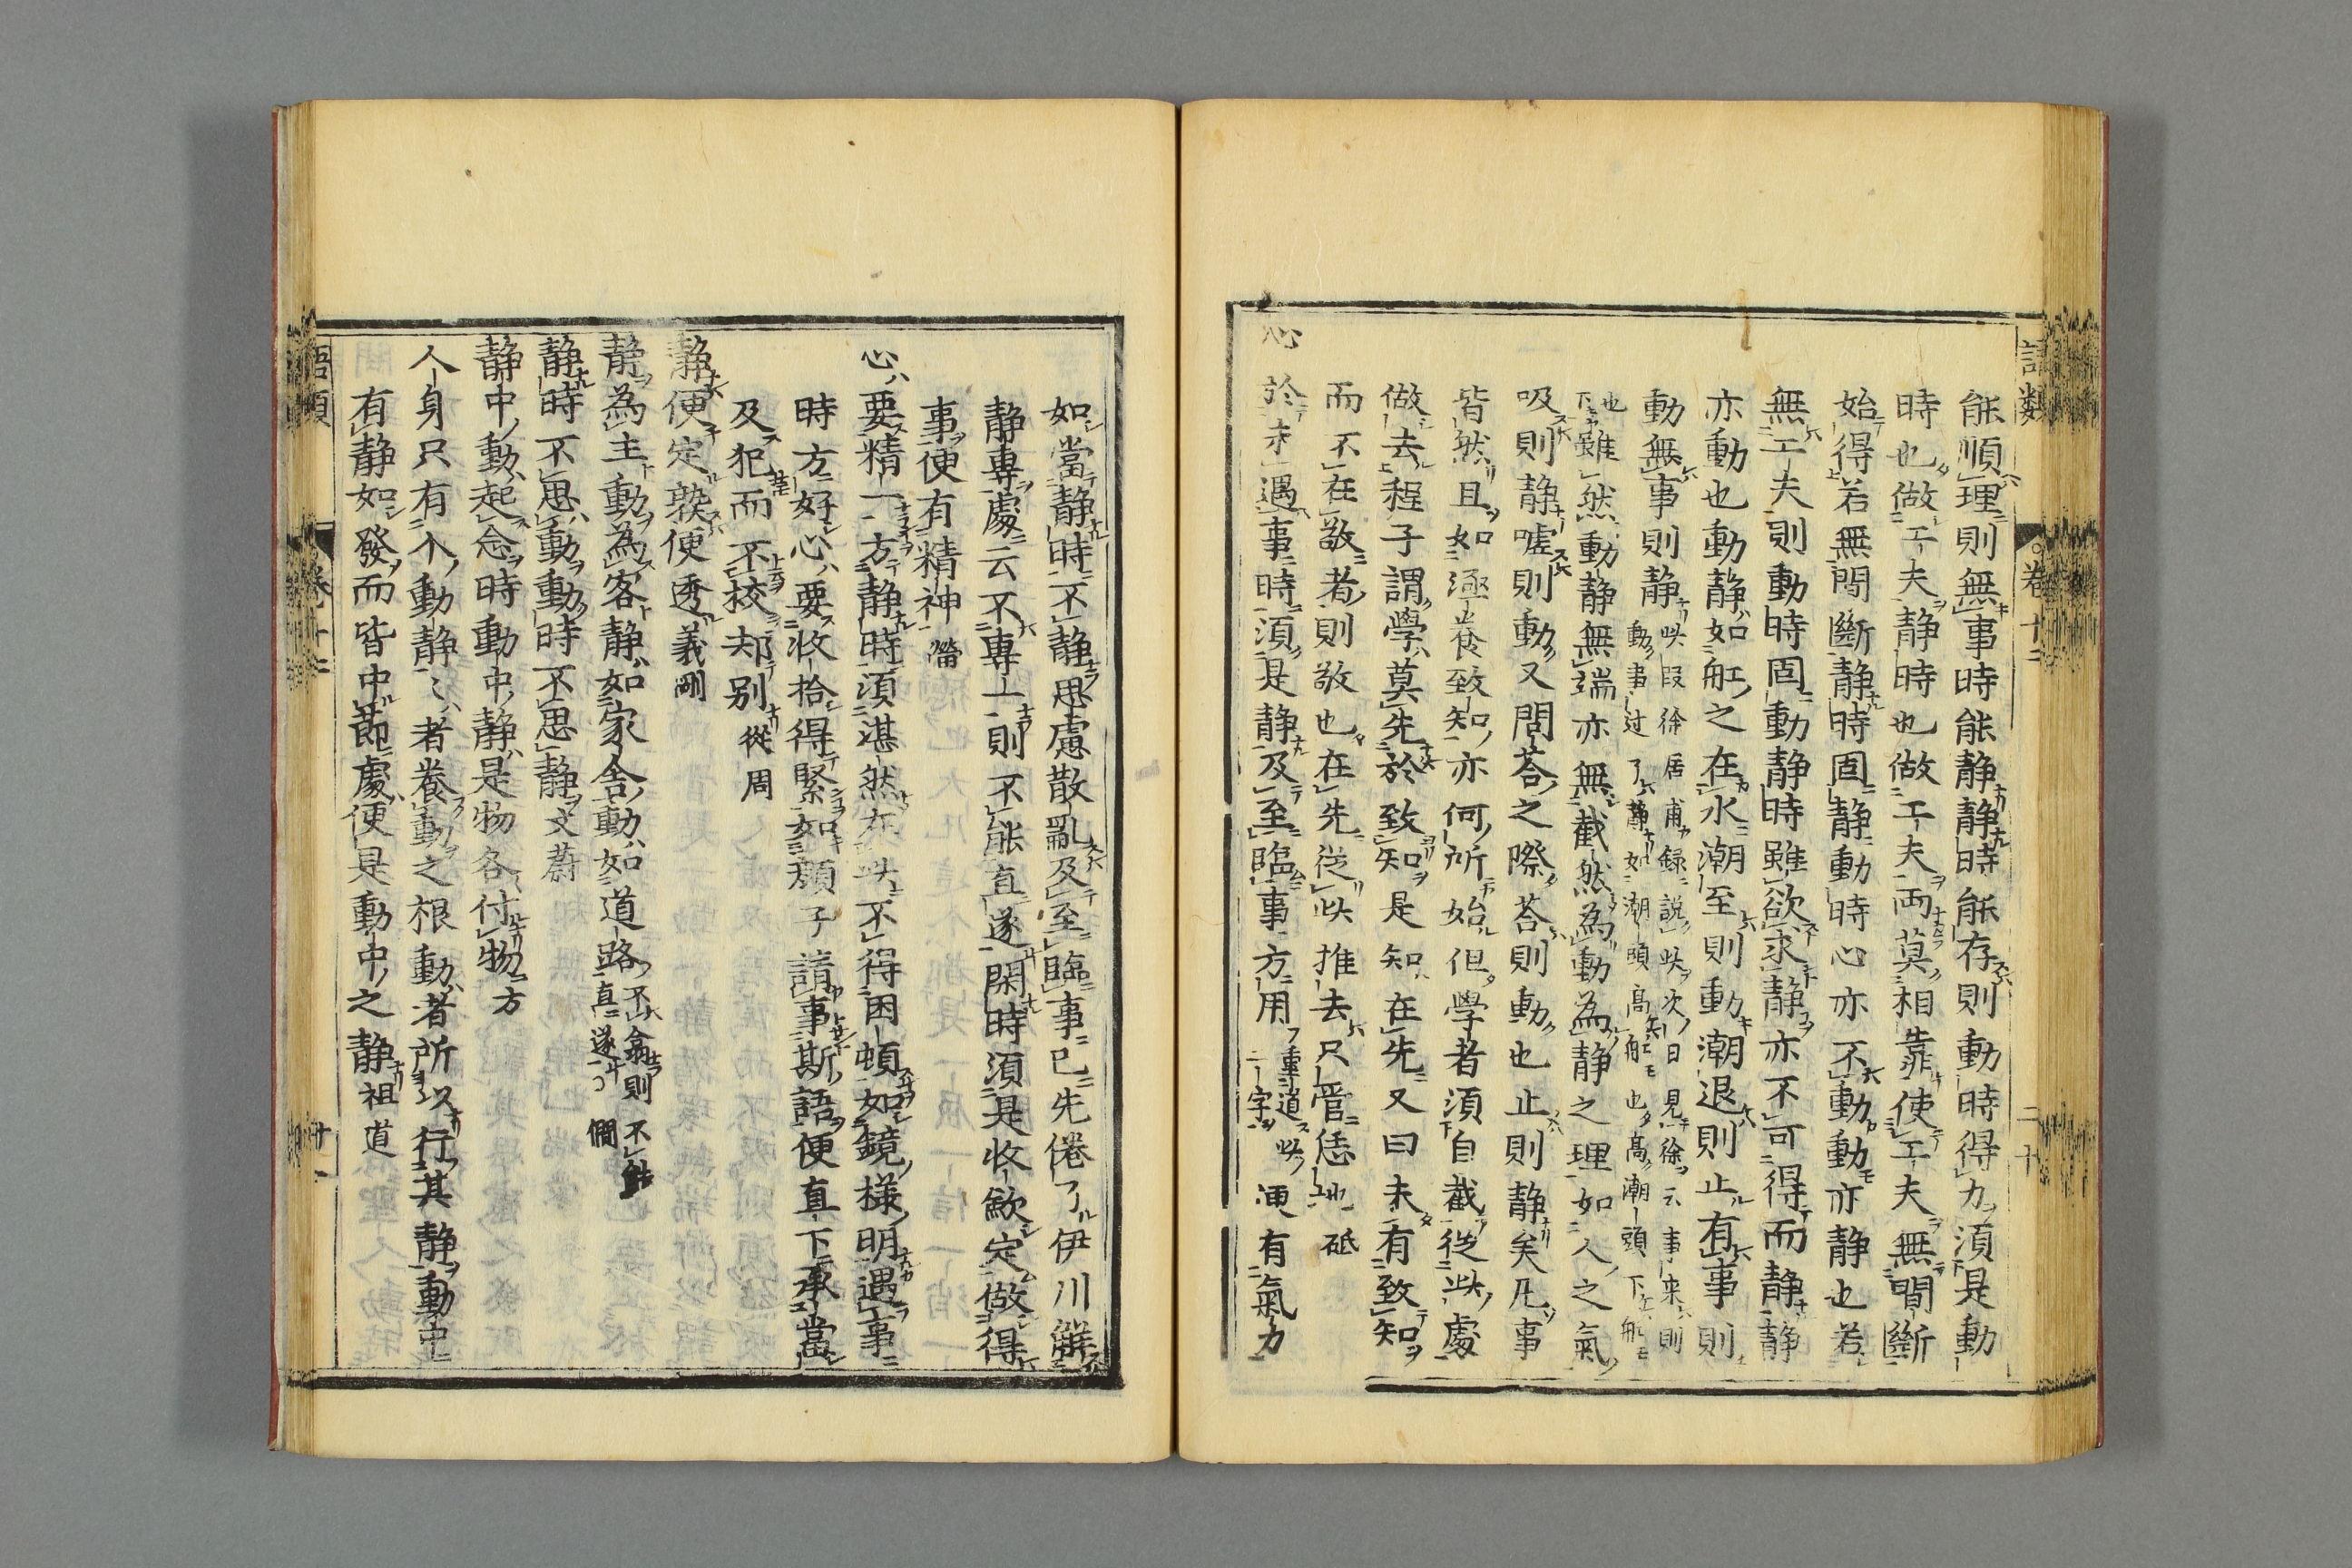 語類 卷十二 二十
能順理則無事時能靜靜時能存則動時得力須是動
時也做工夫靜時也做工夫兩莫相靠使工夫無間斷
始得若無間斷靜時固靜動時心亦不動動亦靜也若
無工夫則動時固動靜時雖欲求靜亦不可得而靜靜
亦動也動靜如舡之在水潮至則動潮退則止有事則
動無事則靜此段徐居甫錄說此次日見徐云事来則
動事过了靜如潮頭高舡也高潮頭下舡
也下雖然動靜無端亦無截然為動為靜之理如人之氣
吸則靜噓則動又問荅之際荅則動也止則靜矣凡事
皆然且如涵養致知亦何所始但學者須自截從此處
做去程子謂學莫先於致知是知在先又曰未有致知
而不在敬者則敬也在先從此推去只管恁地砥
心於未遇事時須是靜及至臨事方用重道此二字便有氣力
如當靜時不靜思慮散亂及至臨事已先倦了伊川解
靜專處云不專一則不能直遂閑時須是收歛定做得
事便有精神㽦
心要精一方靜時須湛然在此不得困頓如鏡樣明遇事
時方好心要收拾得緊如顏子請事斯語便直下承當
及犯而不挍却别從周
靜便定熟便透義剛
靜為主動為客靜如家舍動如道路不翕則不能直遂僩
靜時不思動動時不思靜文蔚
靜中動起念時動中靜是物各付物方
人身只有个動靜〻者養動之根動者所以行其靜動中
有靜如發而皆中節處便是動中之靜祖道
語類 卷十二